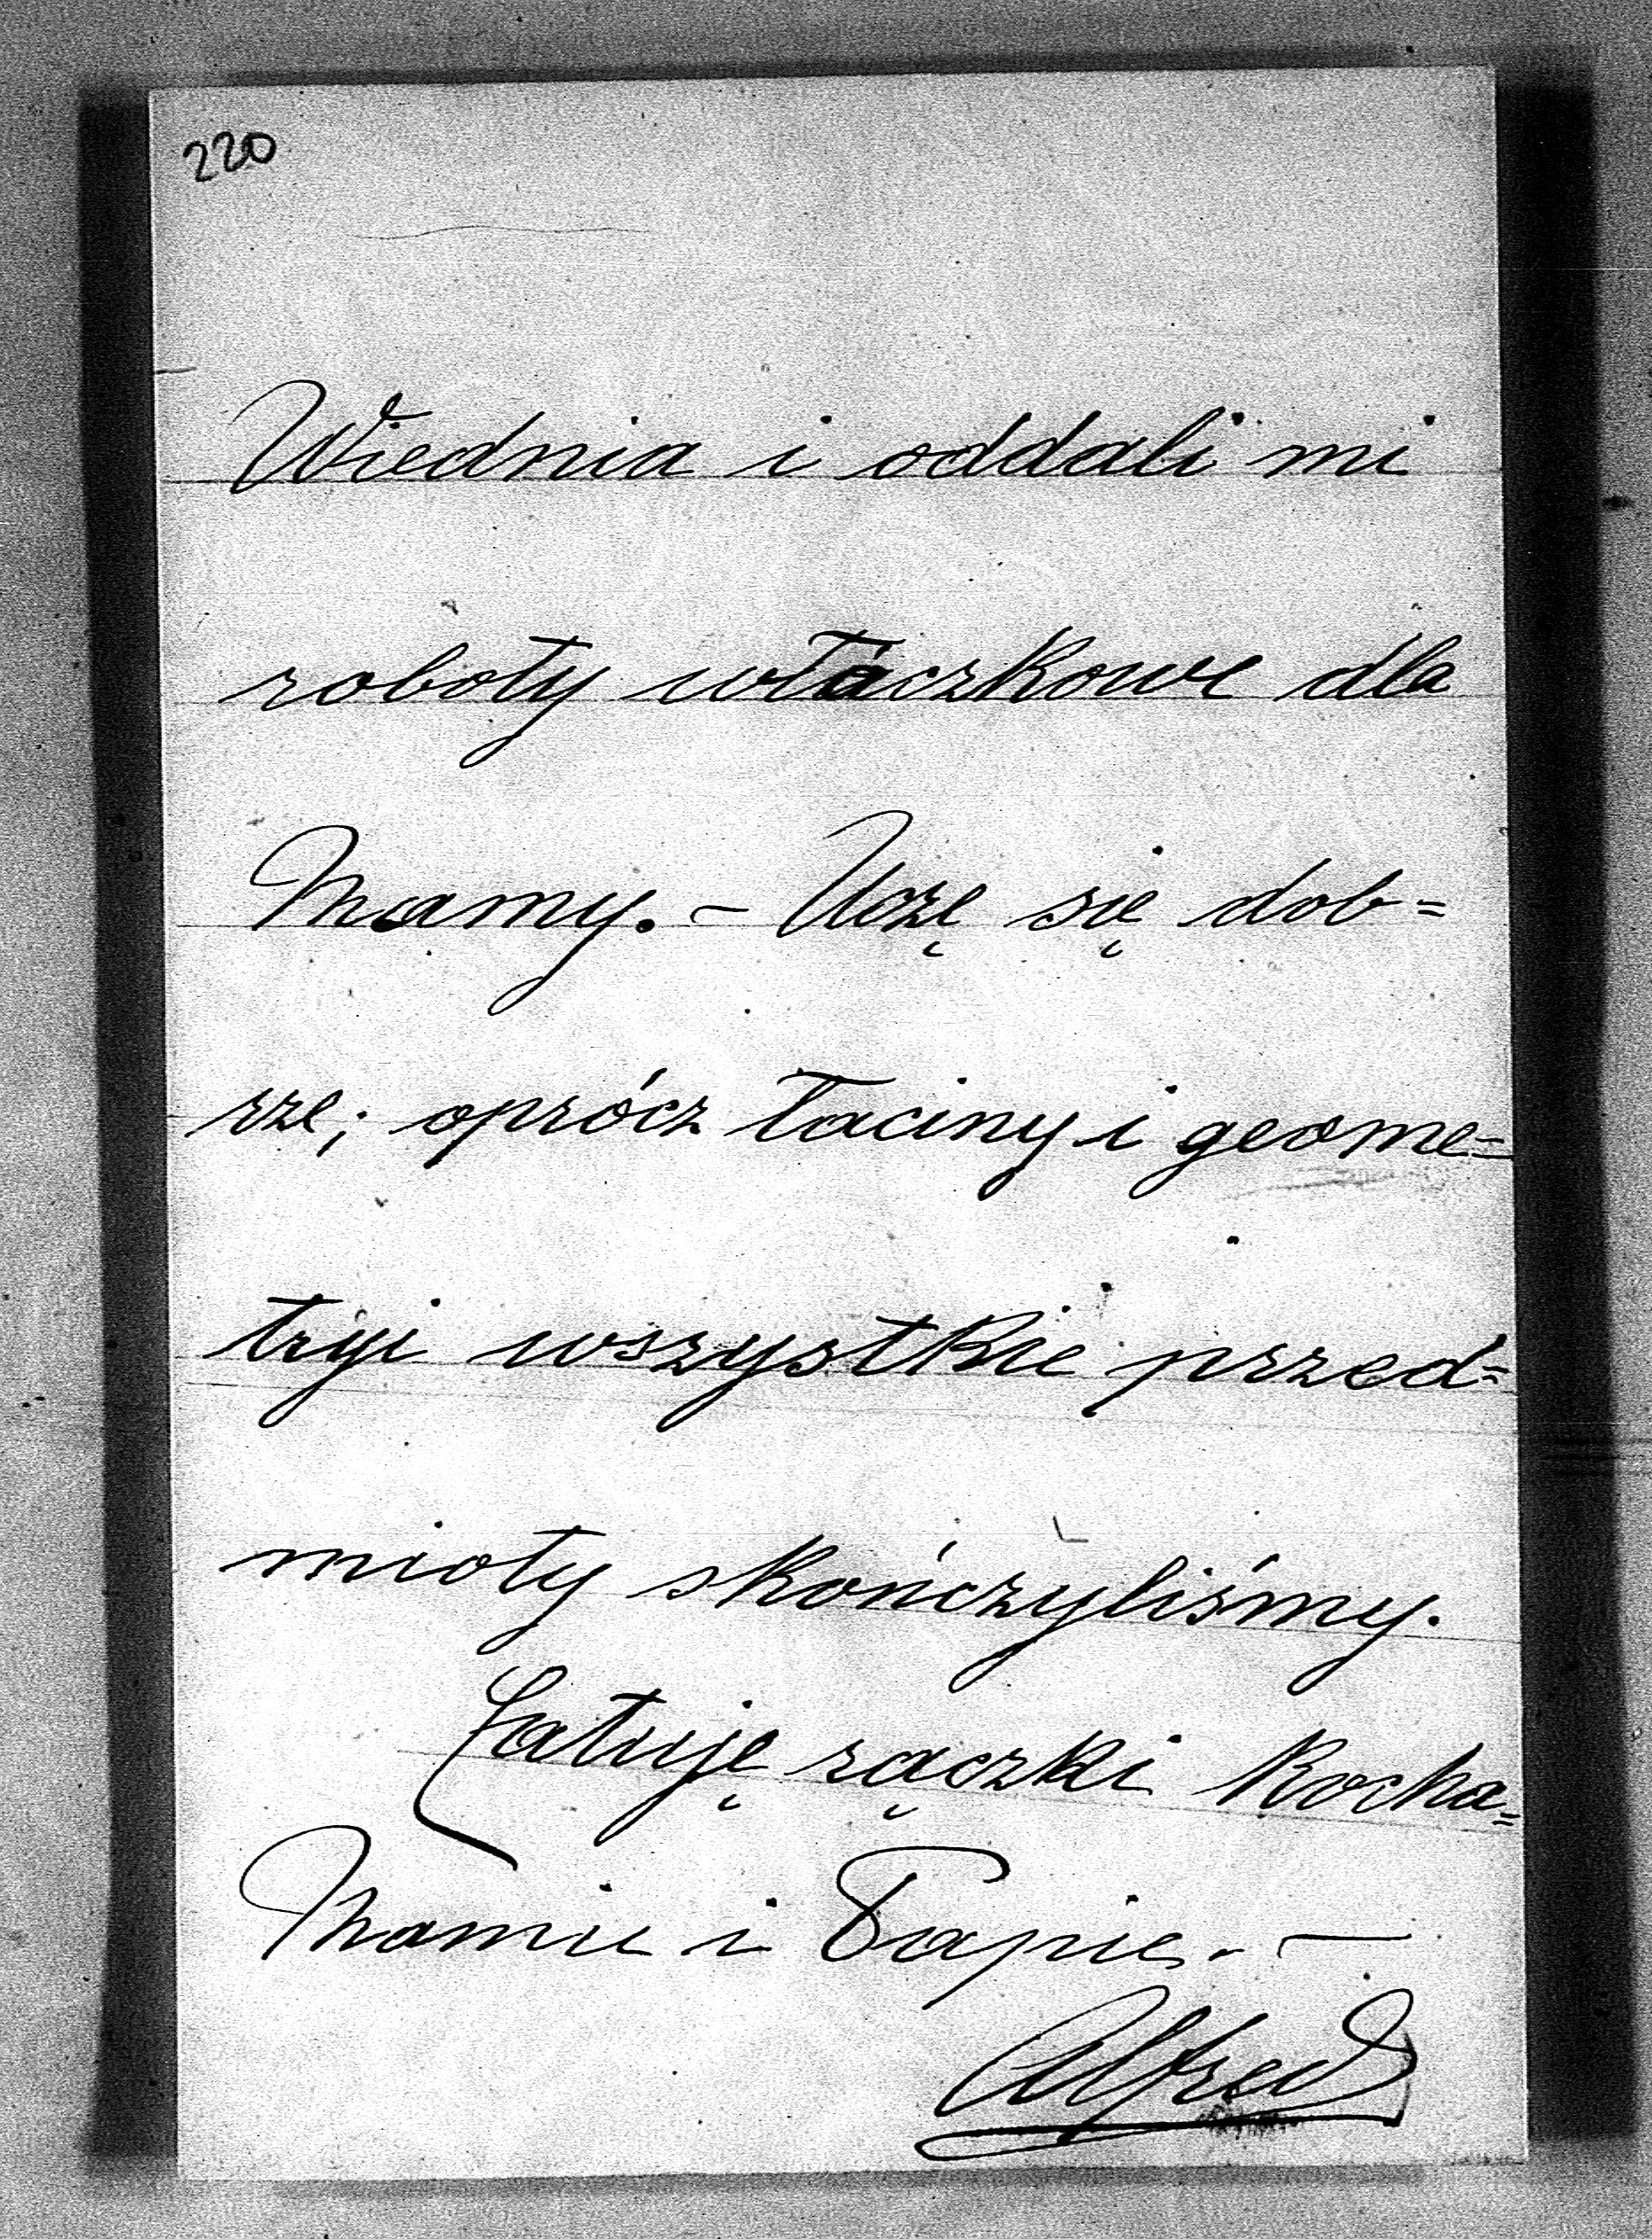 220
Wiednia i oddali mi
roboty włóczkowe dla
Mamy. – Uczę się dob=
rze; oprócz łaciny i geome=
tryi wszystkie przed=
mioty skończyliśmy.
Całuję rączki Kocha=
Mamie i Tapie. –
Alfred